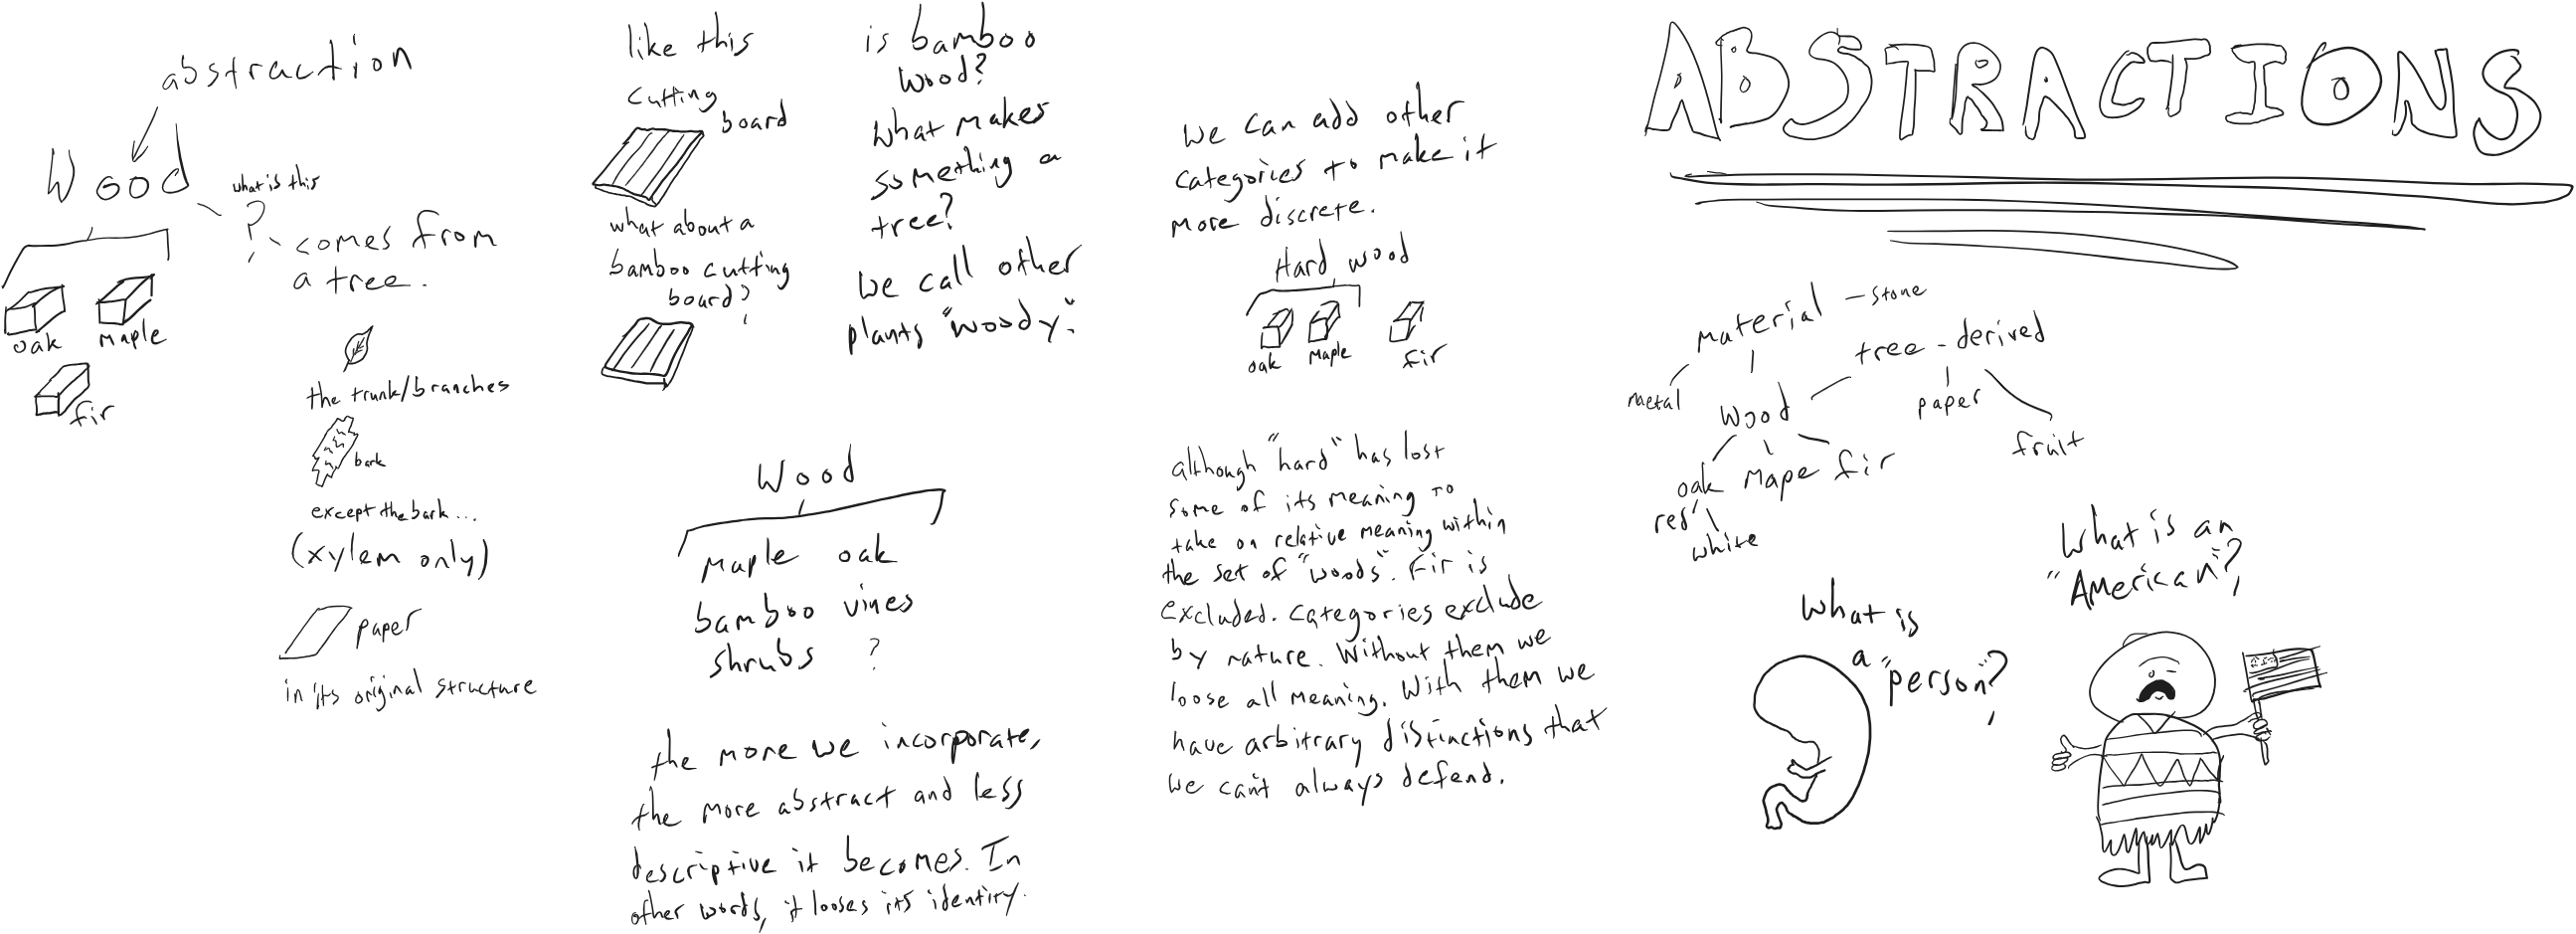 abstraction
Wood
what is this
?
comes from
a tree.
oak
Maple
fir
the trunk/branches
bark
except the bark...
(xylem only)
paper
in its original structure
like this
cutting
board
what about a
bamboo cutting
board?
is bamboo
wood?
what makes
something a
tree?
we call other
plants "woody".
Wood
Maple oak
bamboo vines
shrubs ?
the more we incorporate,
the more abstract and less
descriptive it becomes. In
other words, it looses its identity.
we can add other
categories to make it
more discrete.
Hard wood
oak
Maple
fir
although "hard" has lost
some of its meaning to
take on relative meaning within
the set of "woods". Fir is
excluded. Categories exclude
by nature. Without them we
loose all meaning. With them we
have arbitrary distinctions that
we can't always defend.
ABSTRACTIONS
material - stone
tree-derived
metal
wood
paper
fruit
oak Mape fir
red
white
What is
a "person"?
What is an
"American"?